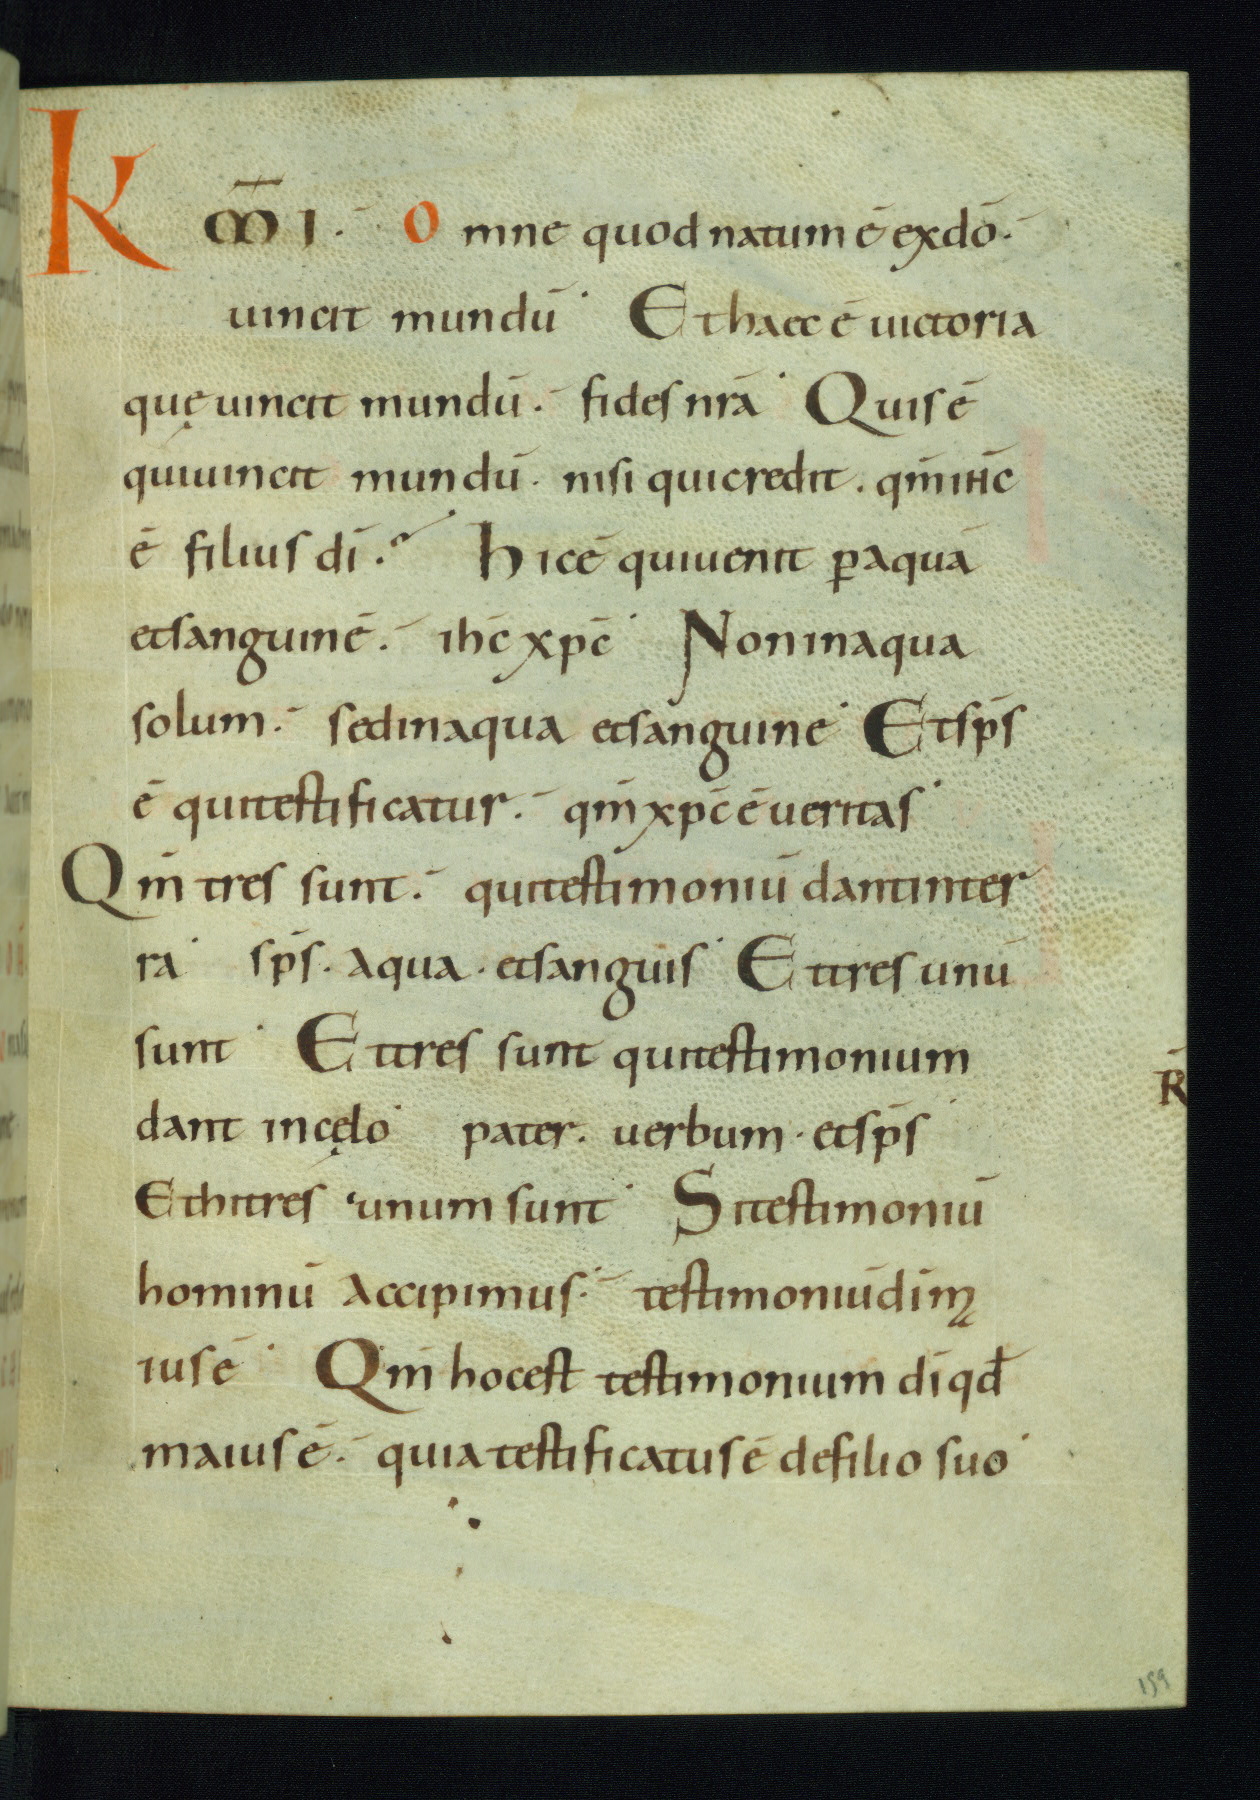 K m̄i. Omne quod natum ē ex dō.
uincit mundū. Et haec ē uictoria
quę uincit mundū. fides nrā. Quis ē
qui uincit mundū. nisi qui credit. qm̄ ihc̄
ē filius dī. hic ē qui uenit ꝑ aquā
et sanguinē. ihc̄ xpc̄. Non in aqua
solum. sed in aqua et sanguine. Et sp̄s
ē qui testificatur. qm̄ xpc̄ ē ueritas.
Qm̄ tres sunt. qui testimoniū dant inter
ra. sp̄s. aqua. et sanguis. Et tres unū
sunt. Et tres sunt qui testimonium
dant in cęlo. pater. uerbum. et sp̄s.
Et hi tres unum sunt. Si testimoniū
hominū accipimus. testimoniū dī m
ius ē. Qm̄ hoc est testimonium dī qđ
maius ē. quia testificatus ē de filio suo.
R̄
159